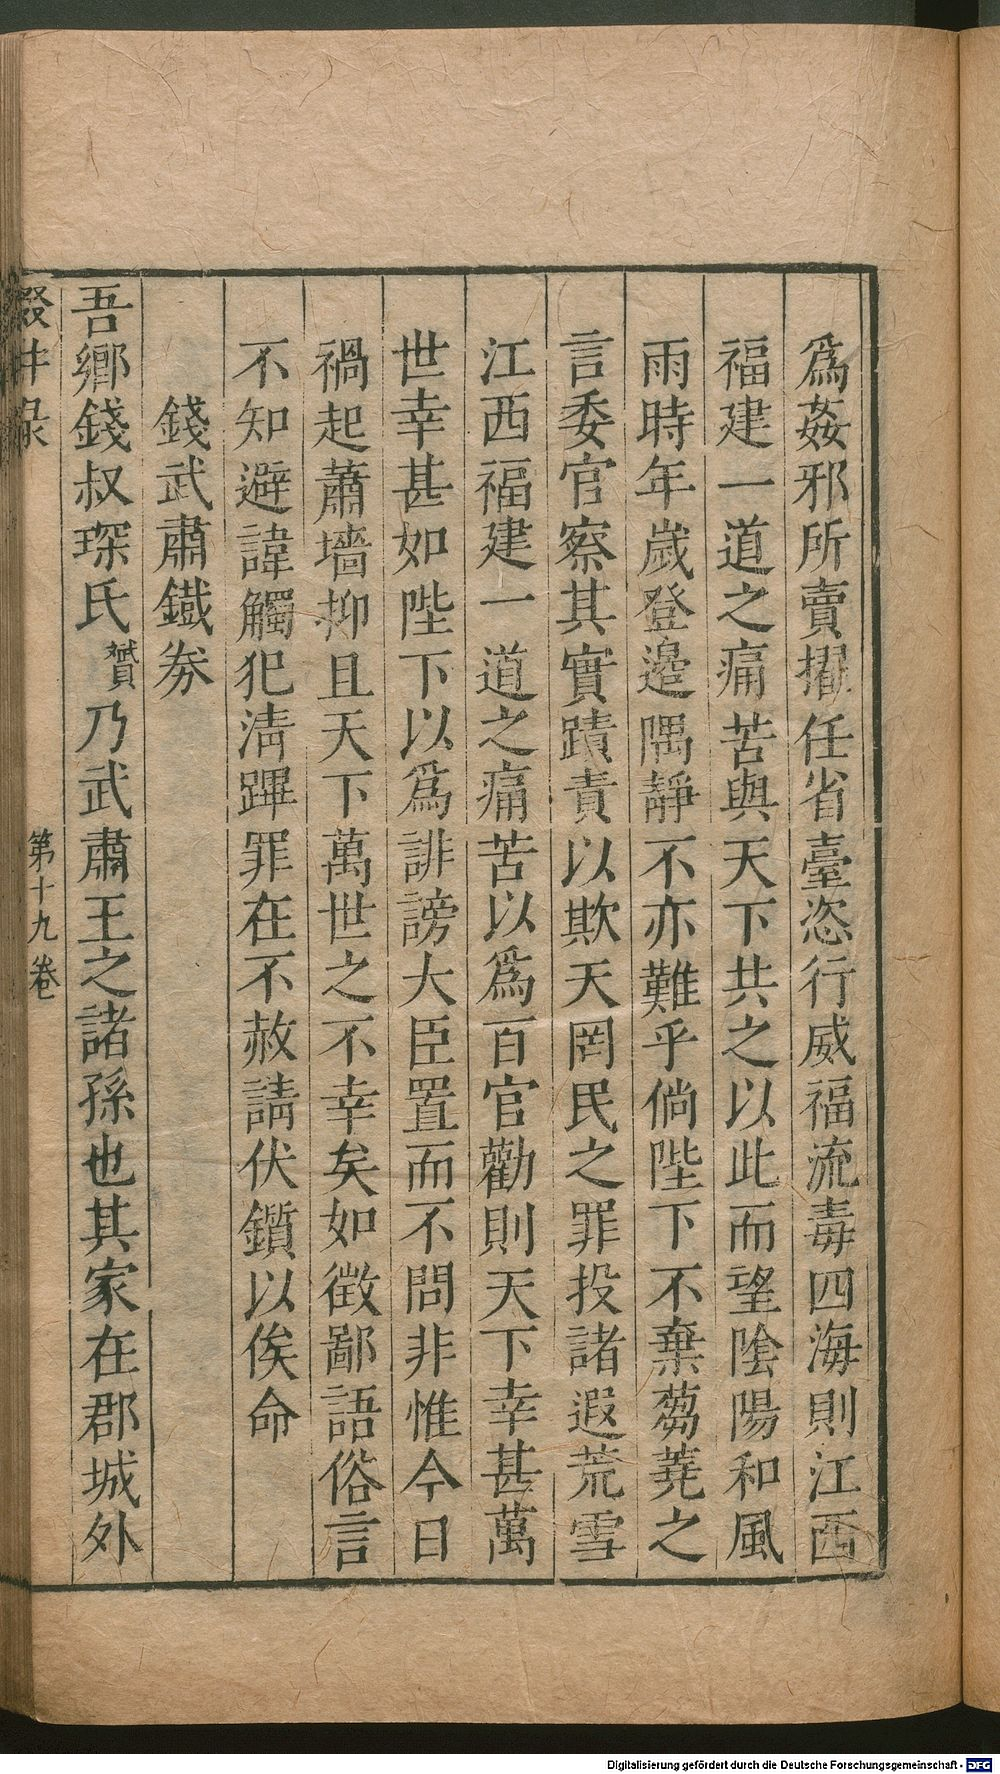 爲姦邪所賣擢任省臺恣行威福流毒四海則江西
福建一道之痛苦與天下共之以此而望陰陽和風
雨時年歲登邉隅靜不亦難乎倘陛下不棄芻蕘之
言委官察其實蹟責以欺天罔民之罪投諸遐荒雪
江西福建一道之痛苦以爲百官勸則天下幸甚萬
世幸甚如陛下以爲誹謗大臣置而不問非惟今日
禍起蕭墻抑且天下萬世之不幸矣如徴鄙語俗言
不知避諱觸犯淸蹕罪在不赦請伏鑕以俟命
錢武肅鐵券
吾鄉錢叔琛氏贇乃武肅王之諸孫也其家在郡城外
輟畊录 第十九卷
Digitalisierung gefördert durch die Deutsche Forschungsgemeinschaft - DFG